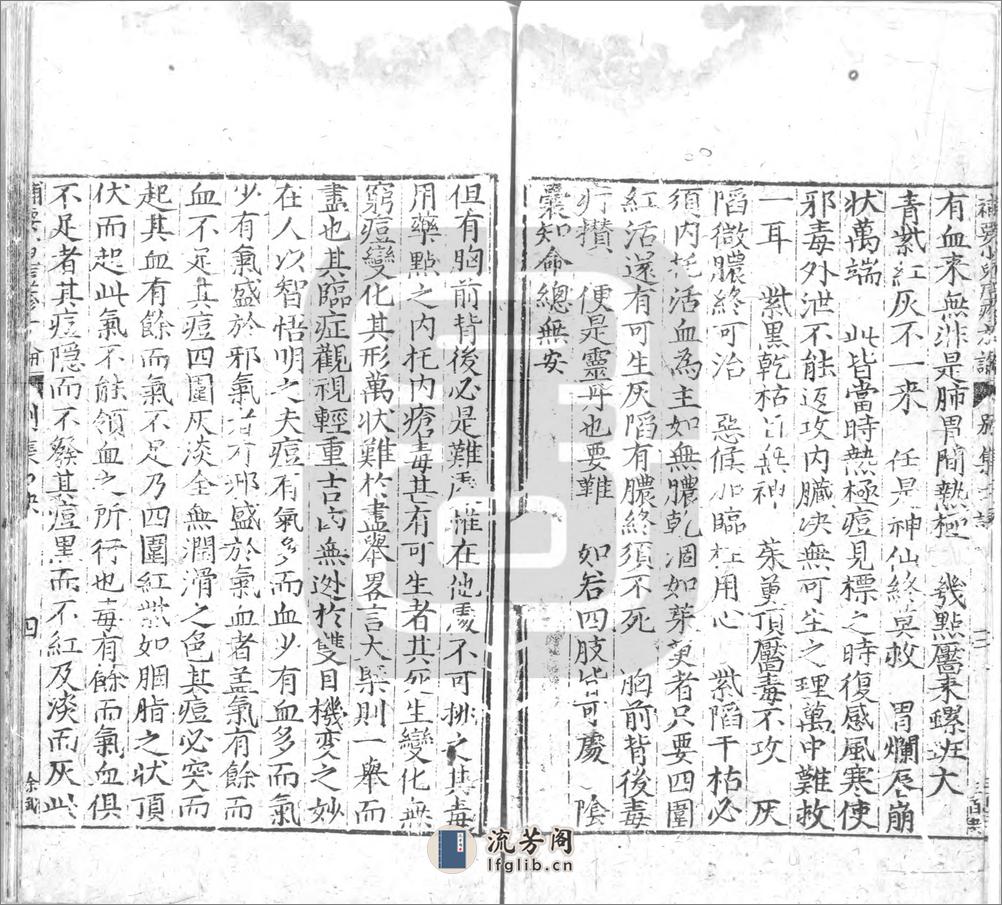 有血來無非是肺胃間熱極　幾點黶來螺斑大
青紫紅灰不一來　任是神仙終莫救　胃爛唇崩
狀萬端　此皆當時熱極痘見標之時復感風寒使
邪毒外泄不能返攻內臟決無可生之理萬中難救
一耳　紫黑乾枯　神　茱萸頂黶毒不攻　灰
陷微膿終可治　惡候　臨在用心　紫陷干枯必
須內托活血為主如無膿乾凅如茱萸者只要四圍
紅活還有可生灰陷有膿終須不死　胸前背後毒
行攢　便是靈丹也要難　如若四肢皆可處　陰
囊知命總無安
但有胸前背後必是難　在他處不可排之其毒
用藥點之內托內瘡毒甚有可生者其死生變化無
窮痘變化其形萬狀難於盡舉畧言大槩則一舉而
盡也其臨症觀視輕重吉凶無逃於雙目機变之妙
在人以智悟明之夫痘有氣多而血少有血多而氣
少有氣盛於邪氣　有邪盛於氣血者盖氣有餘而
血不足其痘四圍灰淡全無潤滑之色其痘必突而
起其血有餘而氣不足乃四圍紅紫如胭脂之狀頂
伏而起此氣不能領血之所行也毒有餘而氣血俱
不足者其痘隱而不發其痘黑而不紅及淡而灰此
四
流芳阁
lfglib.cn